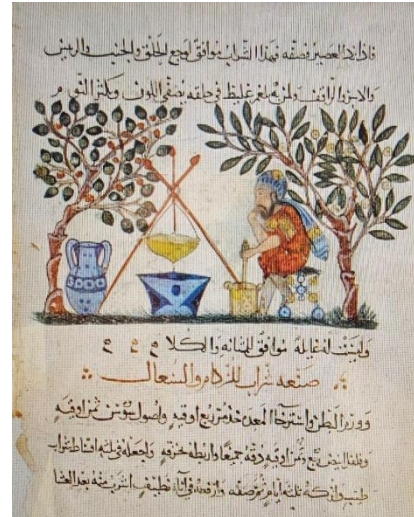 فاذا اراد العصير فصفه فهذا الشراب موافق لوجع الحلق والجنب والريتين
ولمن به بلغم غليظ في حلقه يصفي اللون ويكثر النوم
وليست له غايلة موافق للمثانه والكلا
صنعه شراب للزكام والسعال
البطن واسترخا المعده خذ مر ربع اوقيه واصول سوسن ثمن اوقيه
وفلفل ابيض ربع وثمن اوقيه دقه جميعا واربطه بخرقه واجعله في ثلثه اقساط شراب
طيب واتركه ثلثه ايام ثم صفه وارفعه في اناء نظيف اشرب منه بعد العشا